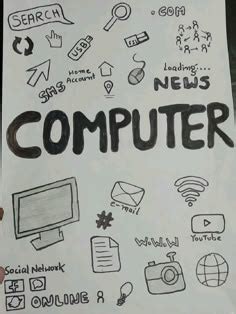 SEARCH
.COM
USB
Home
Account
SMS
Loading....
NEWS
COMPUTER
e-mail
#
W.W.W
YouTube
Social Network
f
ONLINE